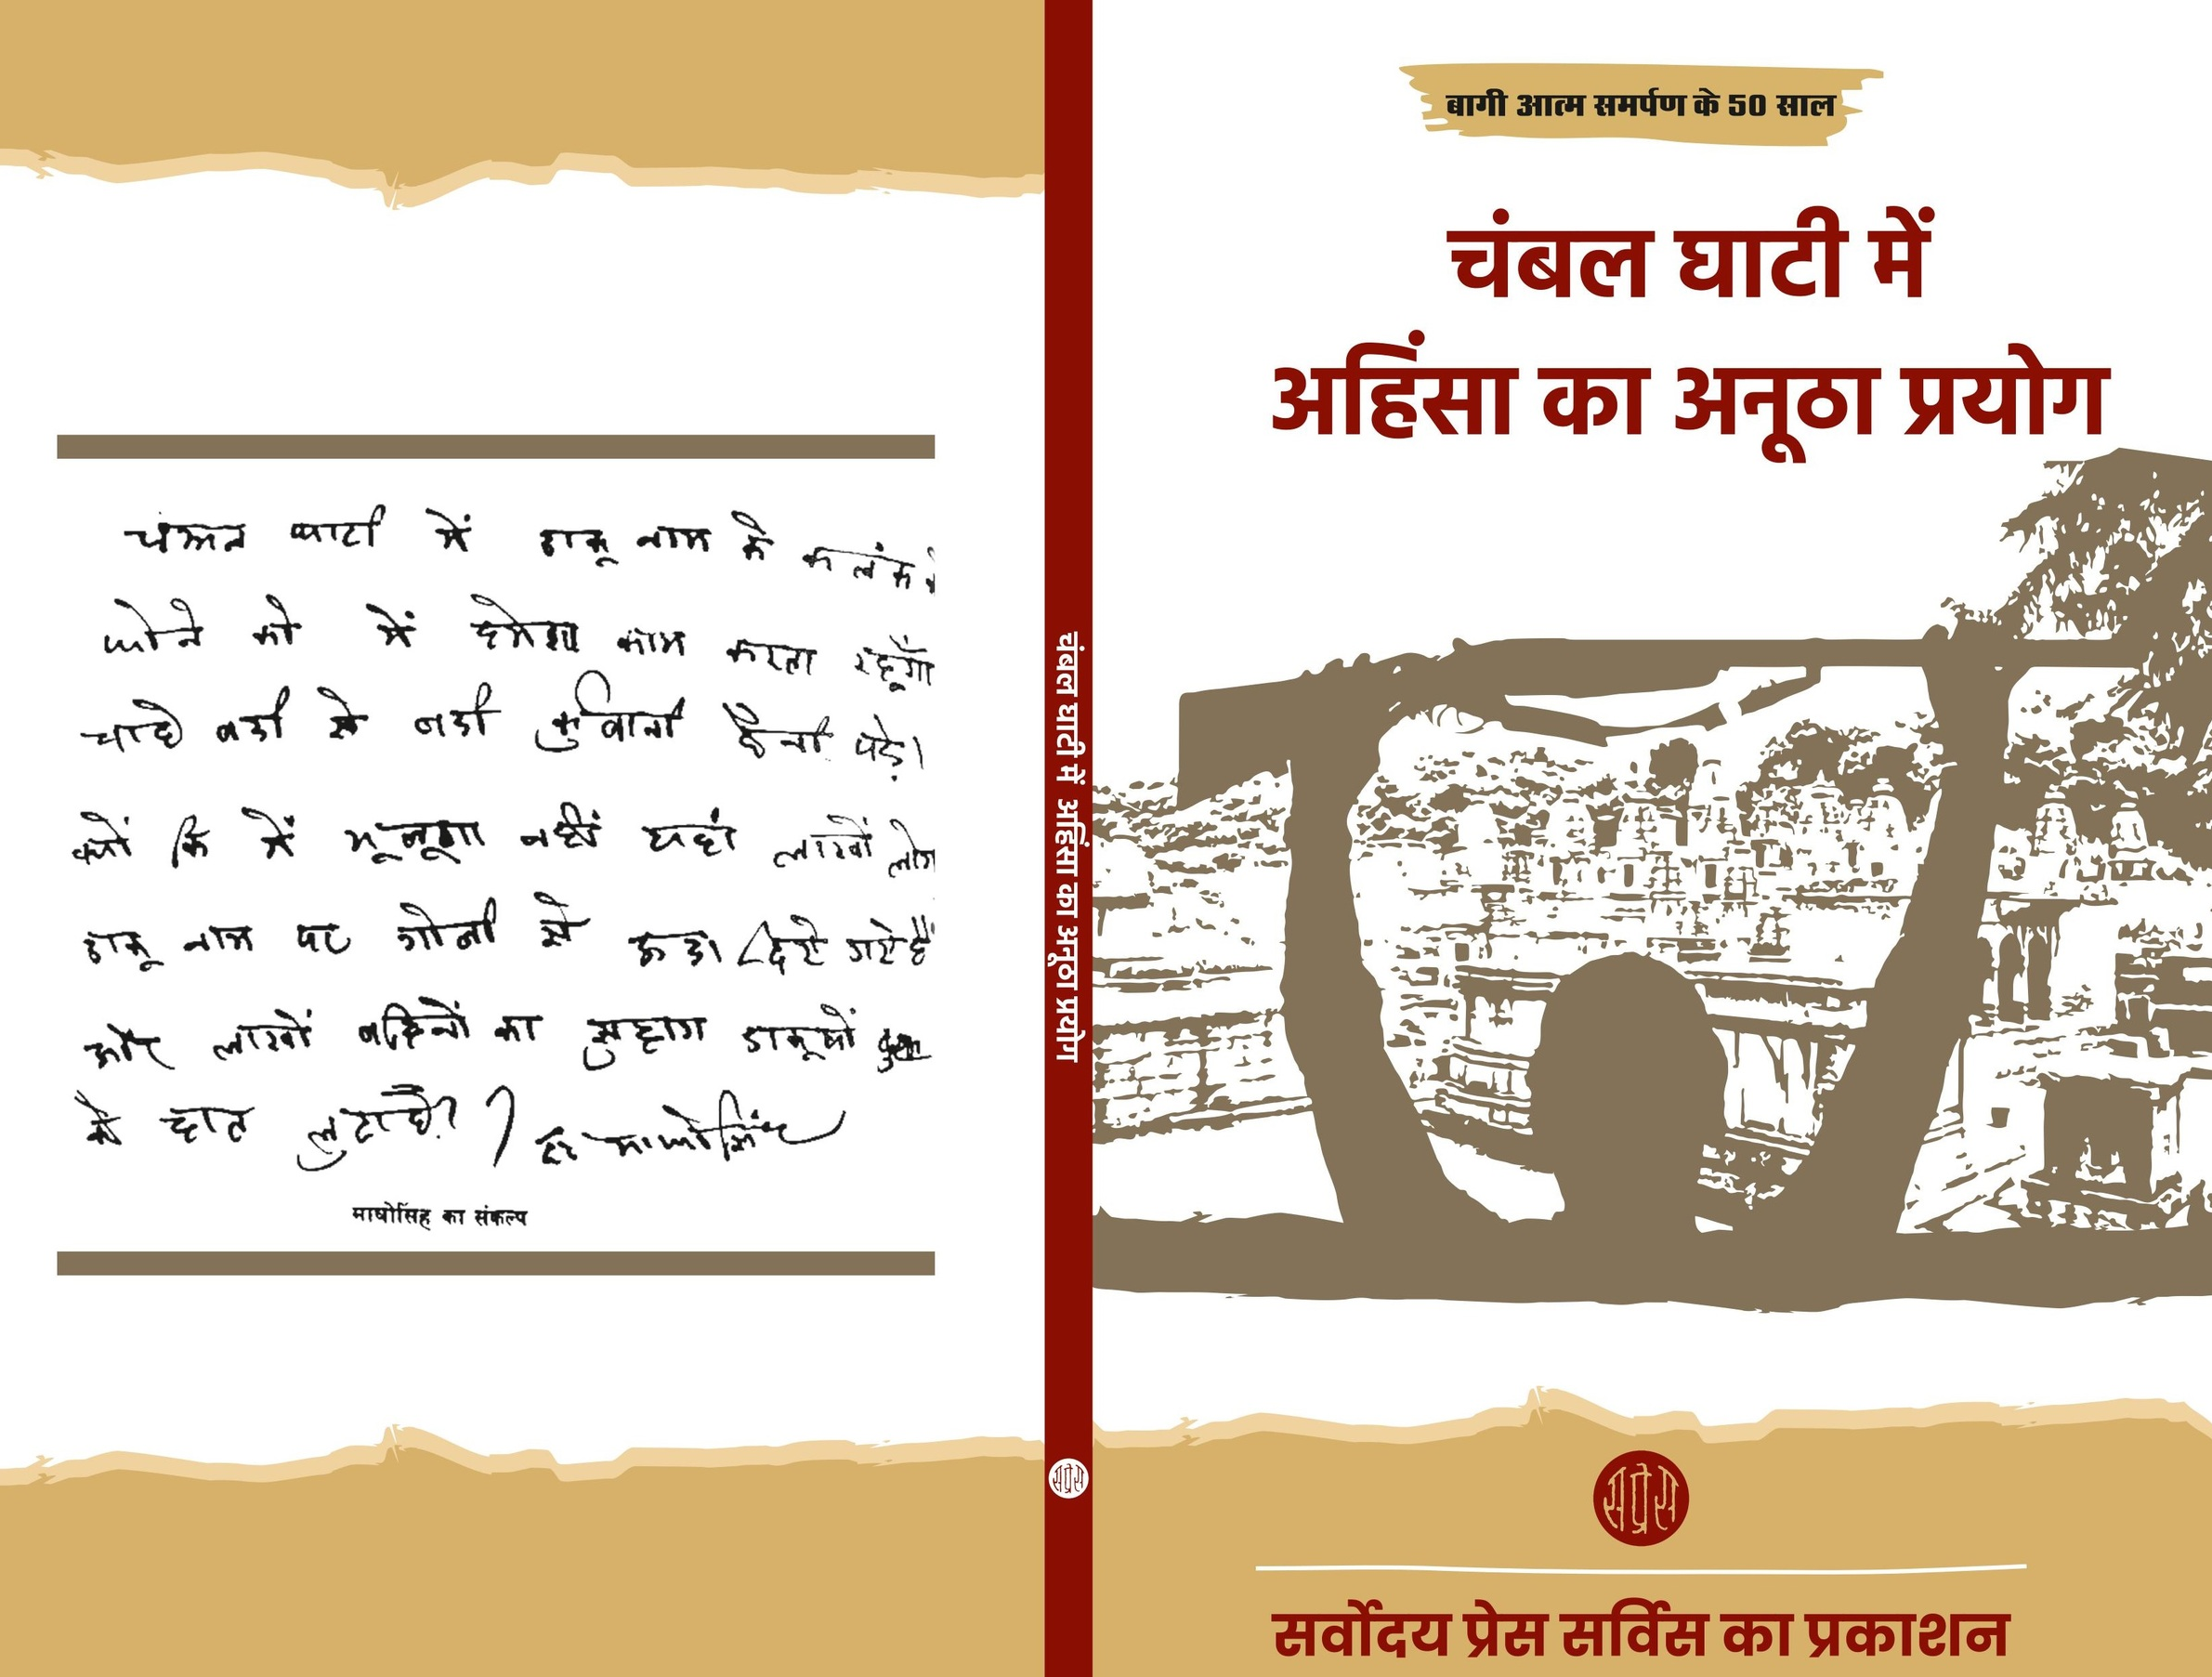 चंबल घाटी में डाकू नाम के कलंक
धोने को में हमेशा काम करता रहूँगा
चाहे बडी से बडी कुर्बानी देनी पडे।
क्यों कि में भूलूगा नहीं यहां लाखों लोग
डाकू नाम पर गोली से उडा दिऐ गऐ है
और लाखों बहिनों का सुहाग डाकूओं
के हात लुटा है?
माधोसिंह
माधोसिंह का संकल्प
चंबल घाटी में अहिंसा का अनूठा प्रयोग
सप्रेस
बागी आत्म समर्पण के 50 साल
चंबल घाटी में
अहिंसा का अनूठा प्रयोग
सप्रेस
सर्वोदय प्रेस सर्विस का प्रकाशन